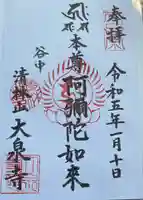 奉拝
令和五年一月十日
本尊阿彌陀如来
谷中
清林山
大泉寺